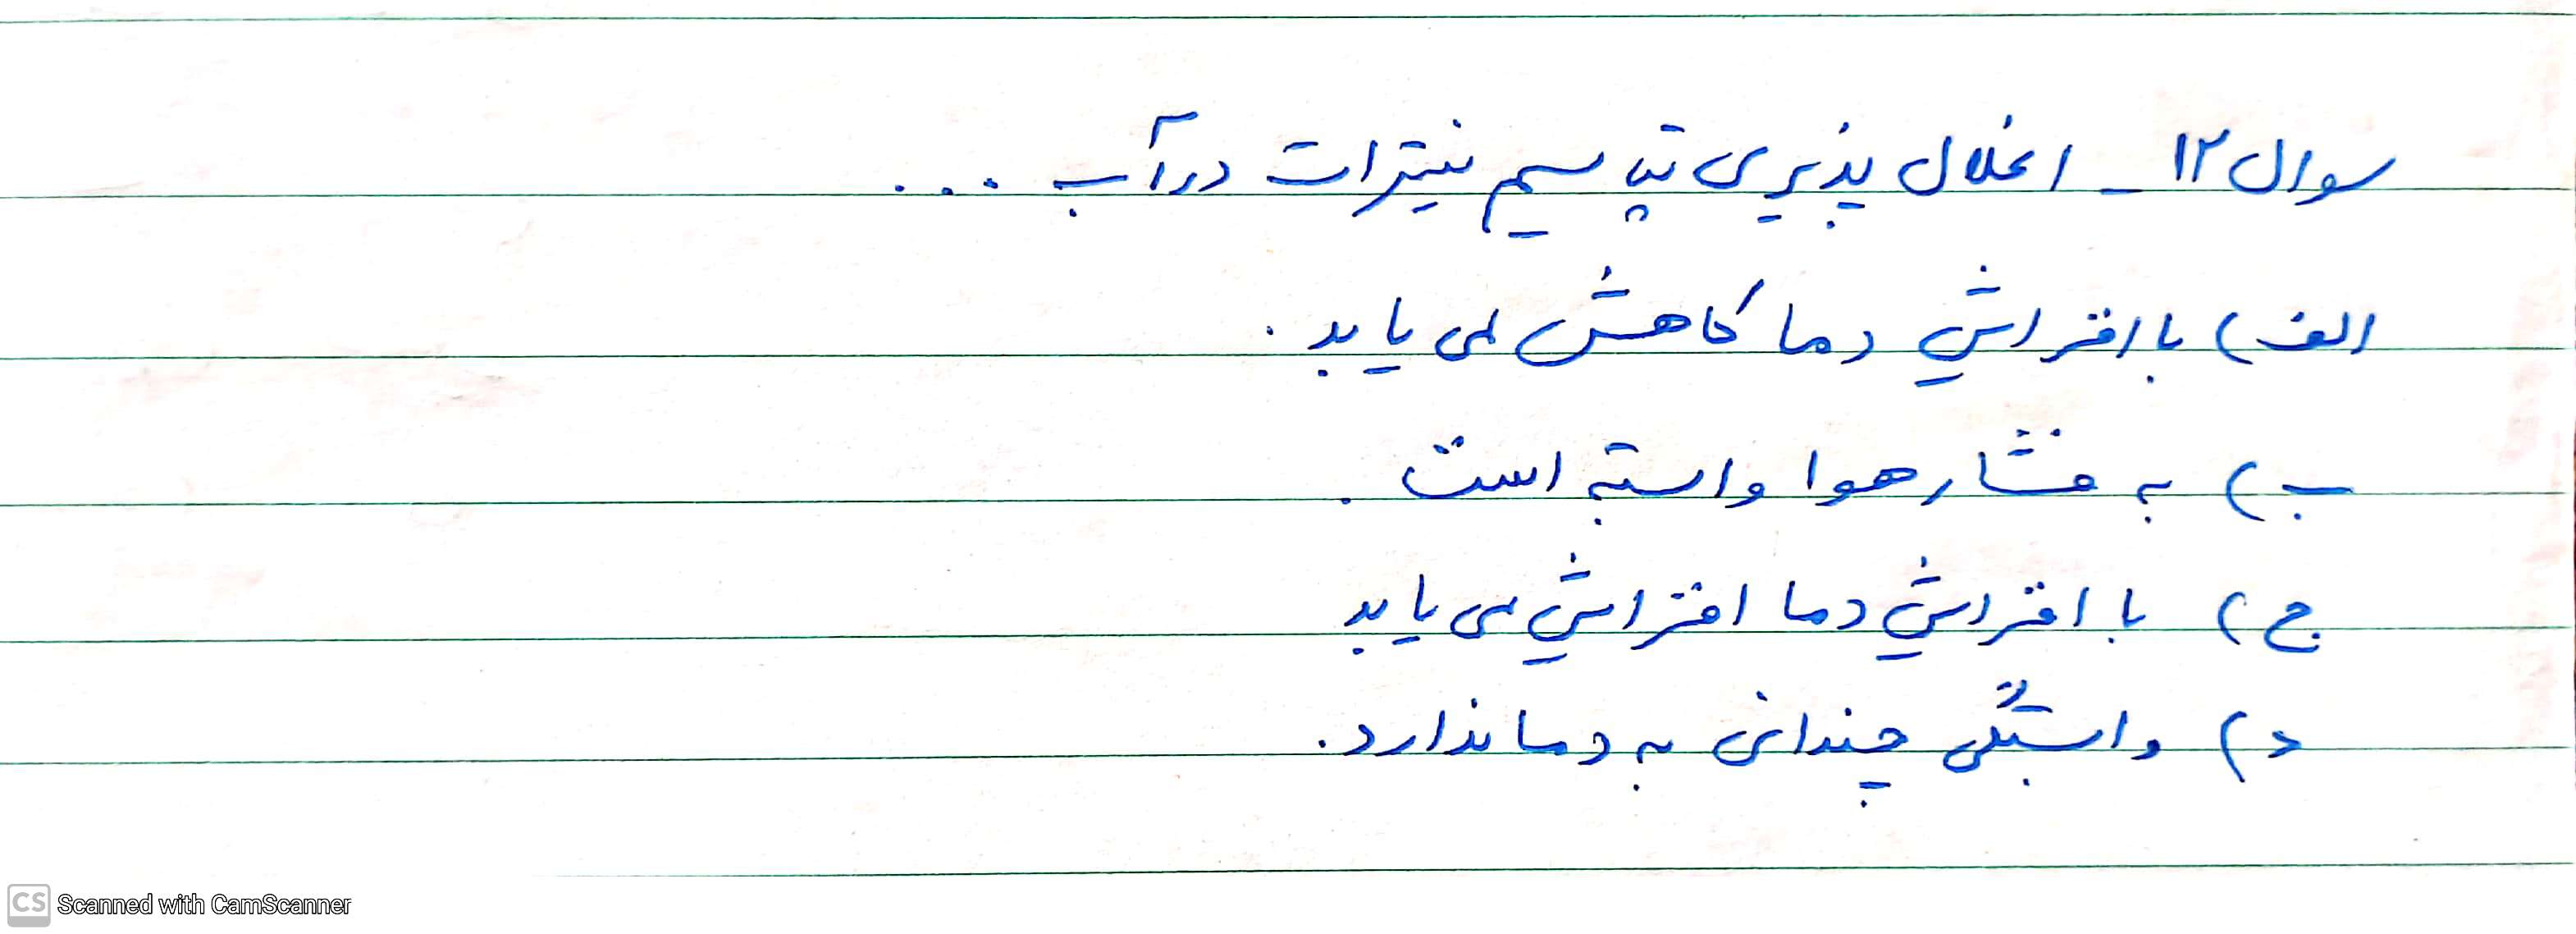 سوال ۱۲ - انحلال پذیری پتاسیم نیترات در آب ...
الف) با افزایش دما کاهش می یابد .
ب) به فشار هوا وابسته است .
ج) با افزایش دما افزایش می یابد
د) وابستگی چندانی به دما ندارد.
CS Scanned with CamScanner